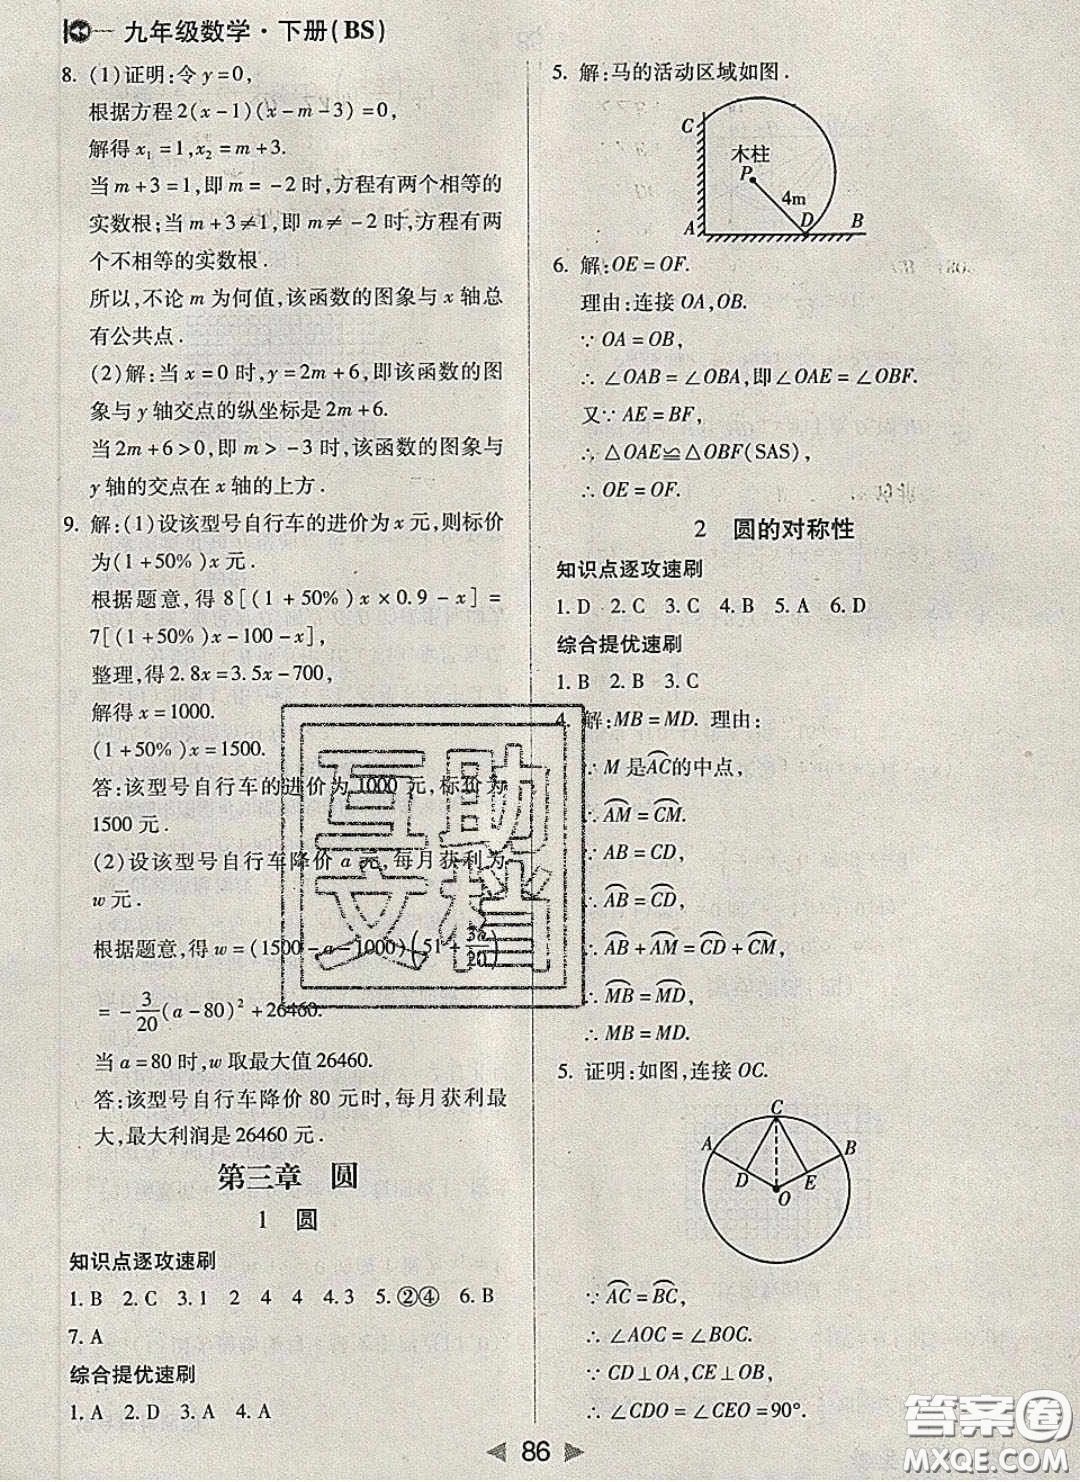 九年级数学·下册(BS)
8. (1)证明:令y=0,
根据方程2(x-1)(x-m-3)=0,
解得x₁=1,x₂=m+3.
当m+3=1,即m=-2时,方程有两个相等的
实数根;当m+3≠1,即m≠-2时,方程有两
个不相等的实数根.
所以,不论m为何值,该函数的图象与x轴总
有公共点.
(2)解:当x=0时,y=2m+6,即该函数的图
象与y轴交点的纵坐标是2m+6.
当2m+6>0,即m>-3时,该函数的图象与
y轴的交点在x轴的上方.
9. 解:(1)设该型号自行车的进价为x元,则标价
为(1+50%)x元.
根据题意,得8[(1+50%)x×0.9-x]=
7[(1+50%)x-100-x],
整理,得2.8x=3.5x-700,
解得x=1000.
(1+50%)x=1500.
答:该型号自行车的进价为1000元,标价为
1500元.
(2)设该型号自行车降价a元,每月获利为
w元.
根据题意,得w=(1500-a-1000)(51+3a/20)
=-3/20(a-80)²+26460.
当a=80时,w取最大值26460.
答:该型号自行车降价80元时,每月获利最
大,最大利润是26460元.
第三章 圆
1 圆
知识点逐攻速刷
1.B 2.C 3.1 2 4 4 4.3 5.②④ 6.B
7.A
综合提优速刷
1.A 2.D 3.A 4.A
5. 解:马的活动区域如图.
C
木柱
P
4m
A D B
6. 解:OE=OF.
理由:连接OA,OB.
∵OA=OB,
∴∠OAB=∠OBA,即∠OAE=∠OBF.
又∵AE=BF,
∴△OAE≌△OBF(SAS),
∴OE=OF.
2 圆的对称性
知识点逐攻速刷
1.D 2.C 3.C 4.B 5.A 6.D
综合提优速刷
1.B 2.B 3.C
4. 解:MB=MD. 理由:
∵M是A͡C的中点,
∴A͡M=C͡M.
∵AB=CD,
∴A͡B=C͡D,
∴A͡B+A͡M=C͡D+C͡M,
∴M͡B=M͡D,
∴MB=MD.
5. 证明:如图,连接OC.
C
A B
D E
O
∵A͡C=B͡C,
∴∠AOC=∠BOC.
∵CD⊥OA,CE⊥OB,
∴∠CDO=∠CEO=90°.
86
互助
文档
答案圈
MXQE.COM